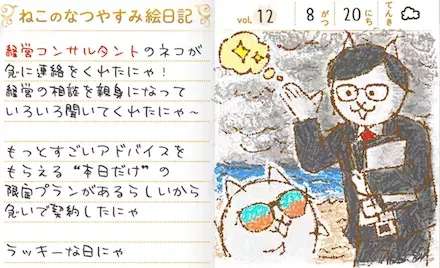 ねこのなつやすみ絵日記
vol. 12
8 がつ 20 にち てんき
経営コンサルタントのネコが
急に連絡をくれたにゃ！
経営の相談を親身になって
いろいろ聞いてくれたにゃ～
もっとすごいアドバイスを
もらえる“本日だけ”の
限定プランがあるらしいから
急いで契約したにゃ
ラッキーな日にゃ